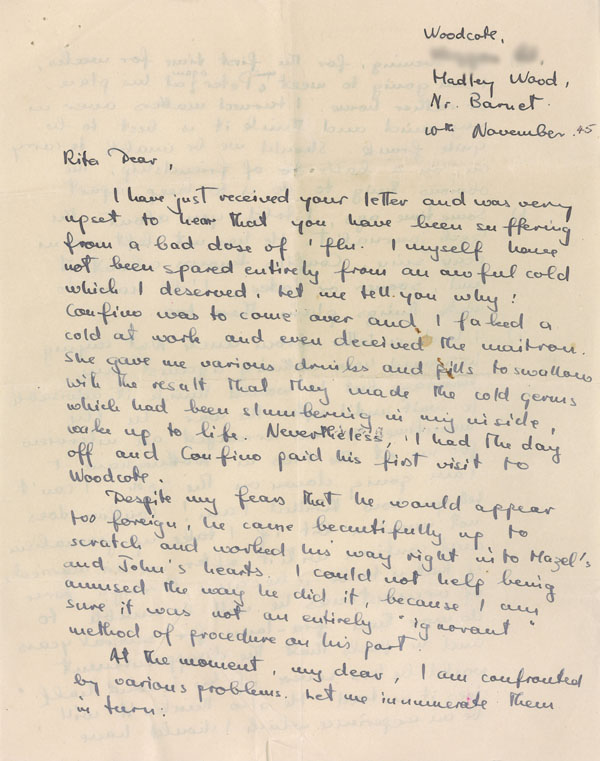 Woodcote,
Hadley Wood,
Nr. Barnet.
10th November. 45
Rita Dear,
I have just received your letter and was very
upset to hear that you have been suffering
from a bad dose of 'flu. I myself have
not been spared entirely from an awful cold
which I deserved. Let me tell you why!
Confino was to come over and I faked a
cold at work and even deceived the maitron.
She gave me various drinks and pills to swallow
with the result that they made the cold germs
which had been slumbering in my inside,
wake up to life. Nevertheless, I had the day
off and Confino paid his first visit to
Woodcote.
Despite my fears that he would appear
too foreign, he came beautifully up to
scratch and worked his way right in to Hazel's
and John's hearts. I could not help being
amused the way he did it, because I am
sure it was not an entirely "ignorant"
method of procedure on his part.
At the moment, my dear, I am confronted
by various problems. Let me innumerate them
in turn: